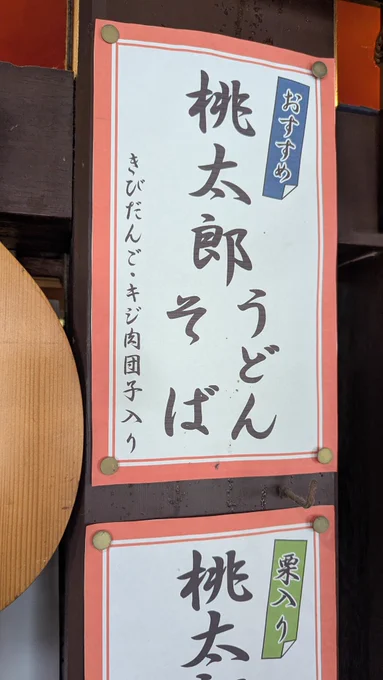 おすすめ
桃太郎
うどん
そば
きびだんご・キジ肉団子入り
栗入り
桃太